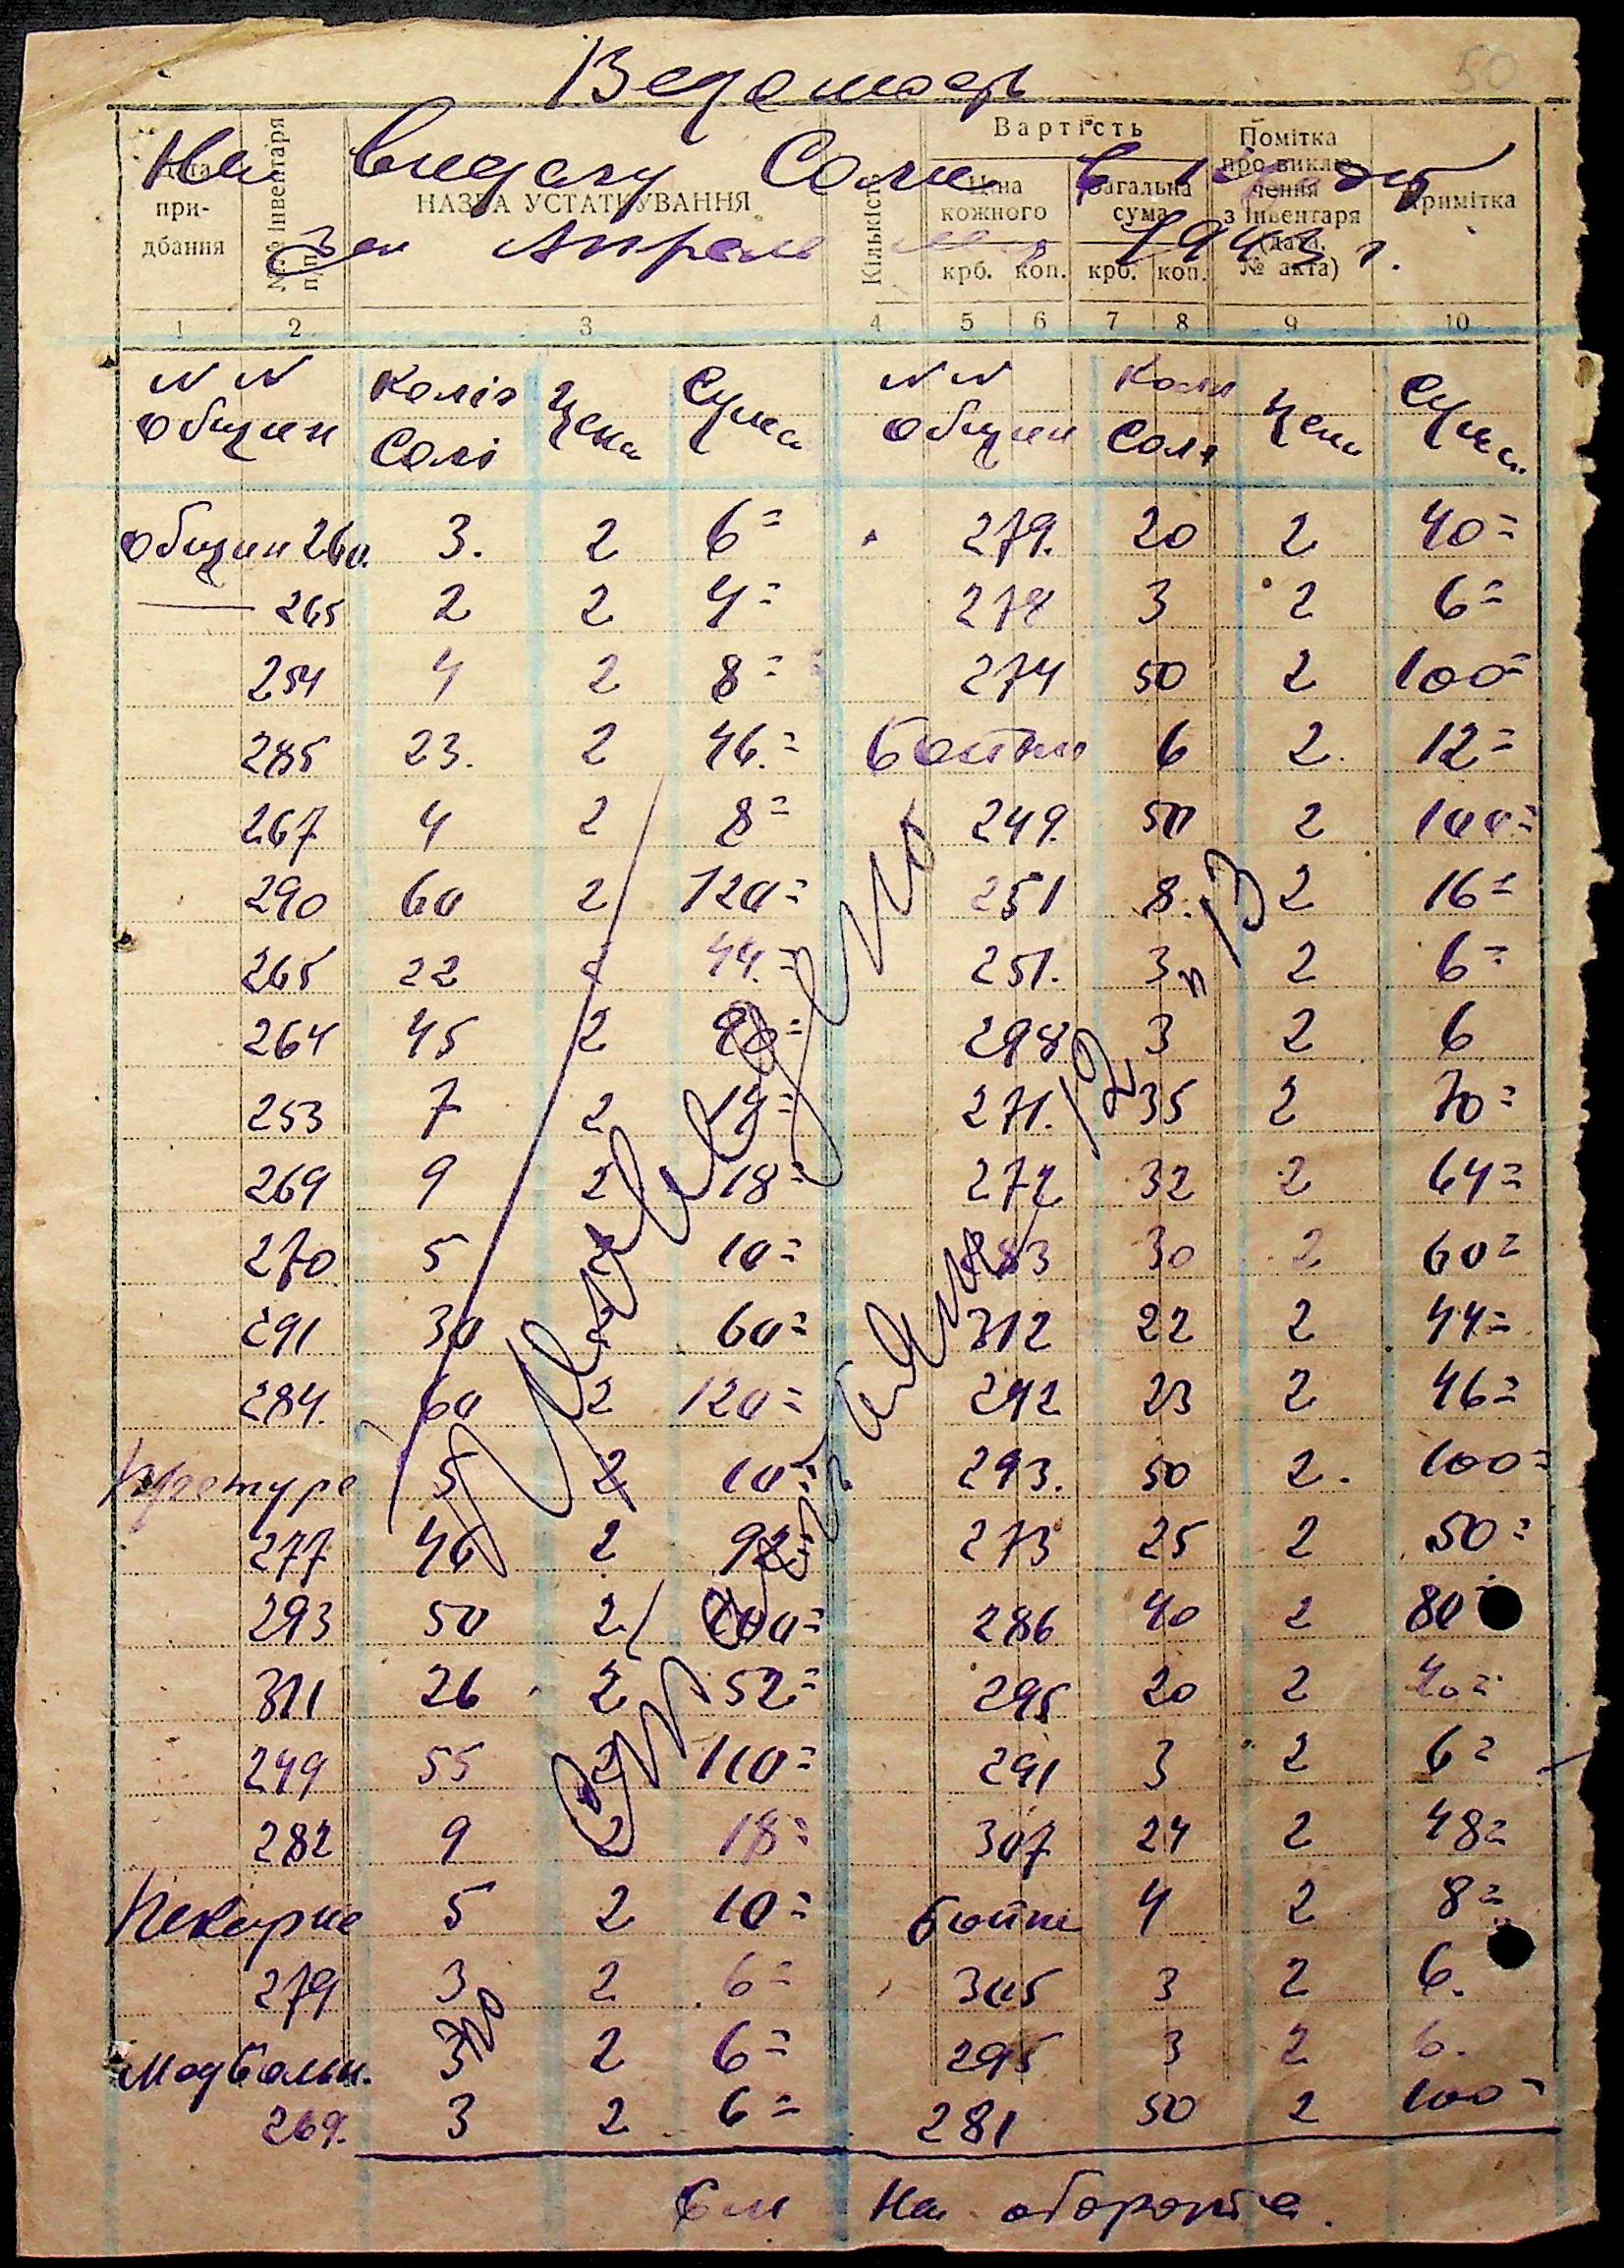 50
Ведомость
На видачу Соли в 
За Апрель м-ц 1943 г.
Дата придбання
№№ інвентаря
НАЗВА УСТАТКУВАННЯ
Кількість
Вартість
Ціна кожного
Загальна сума
крб. коп. крб. коп.
Помітка про виключення з інвентаря (дата, № акта)
Примітка
1 2 3 4 5 6 7 8 9 10
NN общин Коліч Солі Цена Сума NN общин Колич Соли Цена Сума
общин 260. 3. 2 6= 279. 20 2 40=
— 265 2 2 4= 279 3 2 6=
254 4 2 8= 274 50 2 100=
285 23. 2 46.= 6 2. 12=
267 4 2 8= 249. 50 2 100=
290 60 2 120= 251 8. 2 16=
265 22 2 44.= 251. 3 2 6=
264 45 2 90= 298 3 2 6
253 7 2 14= 271. 35 2 70=
269 9 2 18= 272 32 2 64=
270 5 2 10= 283 30 2 60=
291 30 2 60= 312 22 2 44=
284. 60 2 120= 292 23 2 46=
5 2 10= 293. 50 2. 100=
277 46 2 92= 273 25 2 50=
293 50 2 100= 286 40 2 80
311 26 2 52= 295 20 2 40=
249 55 2 110= 291 3 2 6=
282 9 2 18= 307 24 2 48=
Пекарне 5 2 10= бойне 4 2 8=
279 3 2 6= 305 3 2 6.
3 2 6= 295 3 2 6.
269. 3 2 6= 281 50 2 100=
См На обороте.